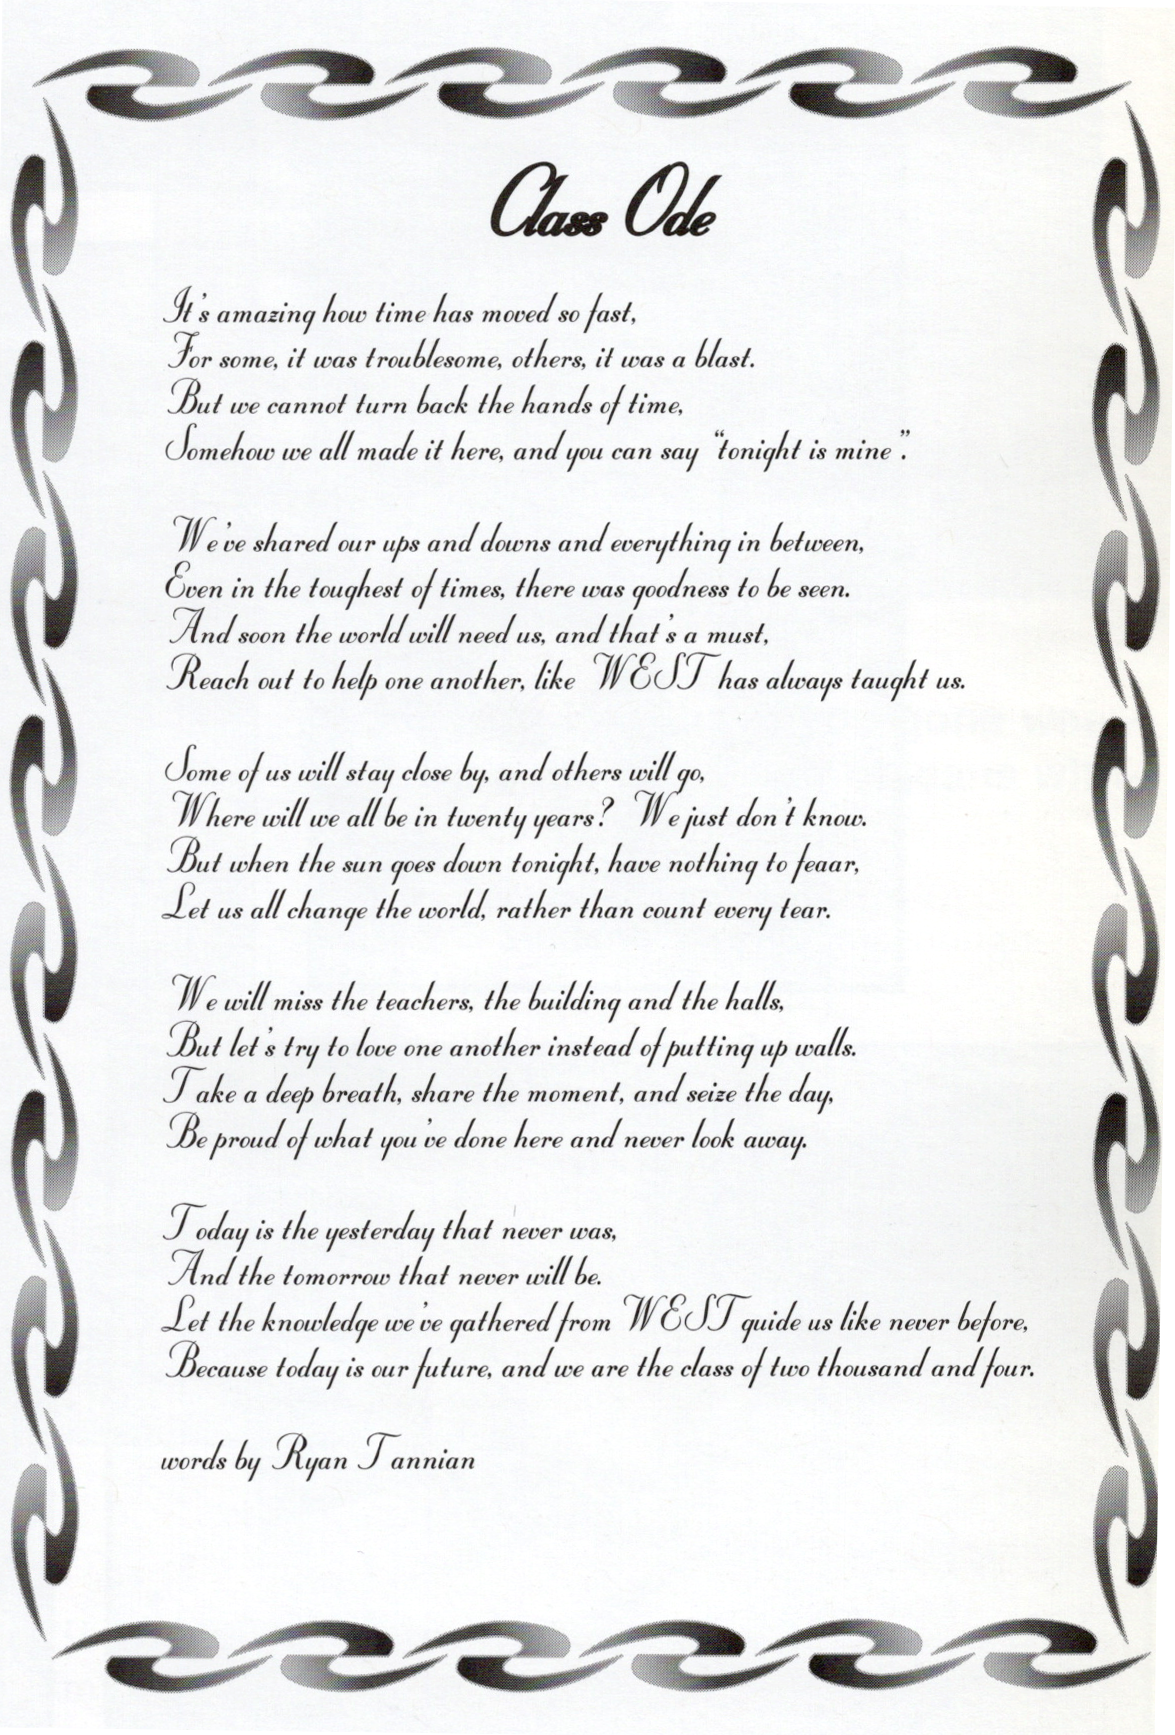 Class Ode
It's amazing how time has moved so fast,
For some, it was troublesome, others, it was a blast.
But we cannot turn back the hands of time,
Somehow we all made it here, and you can say "tonight is mine".
We've shared our ups and downs and everything in between,
Even in the toughest of times, there was goodness to be seen.
And soon the world will need us, and that's a must,
Reach out to help one another, like WEST has always taught us.
Some of us will stay close by, and others will go,
Where will we all be in twenty years? We just don't know.
But when the sun goes down tonight, have nothing to feaar,
Let us all change the world, rather than count every tear.
We will miss the teachers, the building and the halls,
But let's try to love one another instead of putting up walls.
Take a deep breath, share the moment, and seize the day,
Be proud of what you've done here and never look away.
Today is the yesterday that never was,
And the tomorrow that never will be.
Let the knowledge we've gathered from WEST guide us like never before,
Because today is our future, and we are the class of two thousand and four.
words by Ryan Tannian